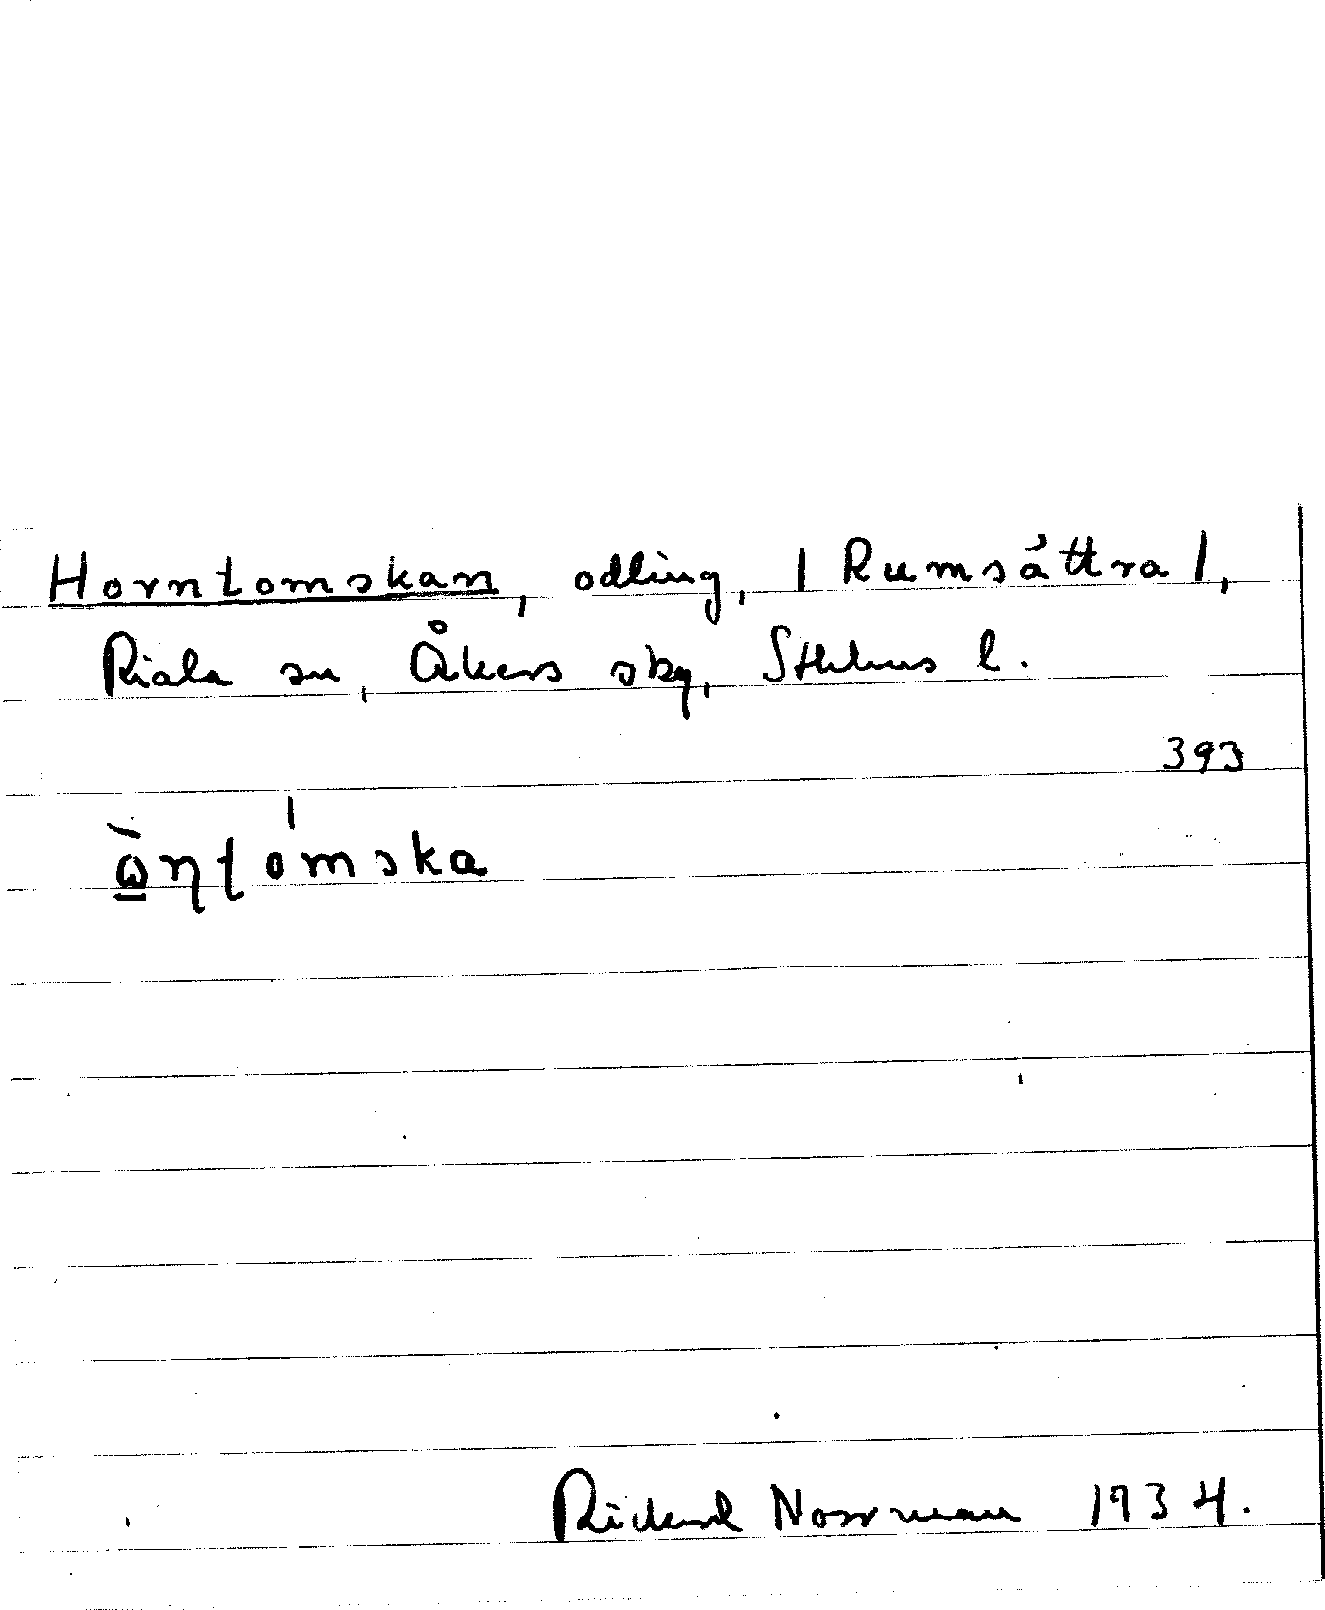 Horntomskan, odling, | Rumsättra |,
Riala sn, Åkers skg, Sthlms l.
393
ὼηƭómska
Rickard Norrman 1934.